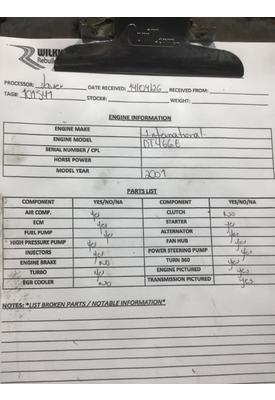 R WILK
Rebuil
PROCESSOR: DATE RECEIVED: RECEIVED FROM:
TAG#: STOCK#: WEIGHT:
ENGINE INFORMATION
ENGINE MAKE International
ENGINE MODEL DT466E
SERIAL NUMBER / CPL
HORSE POWER
MODEL YEAR 2001
PARTS LIST
COMPONENT YES/NO/NA COMPONENT YES/NO/NA
AIR COMP. yes CLUTCH NO
ECM yes STARTER yes
FUEL PUMP yes ALTERNATOR yes
HIGH PRESSURE PUMP yes FAN HUB yes
INJECTORS yes POWER STEERING PUMP yes
ENGINE BRAKE NO TURN 360 yes
TURBO yes ENGINE PICTURED yes
EGR COOLER NO TRANSMISSION PICTURED yes
NOTES: *LIST BROKEN PARTS / NOTABLE INFORMATION*